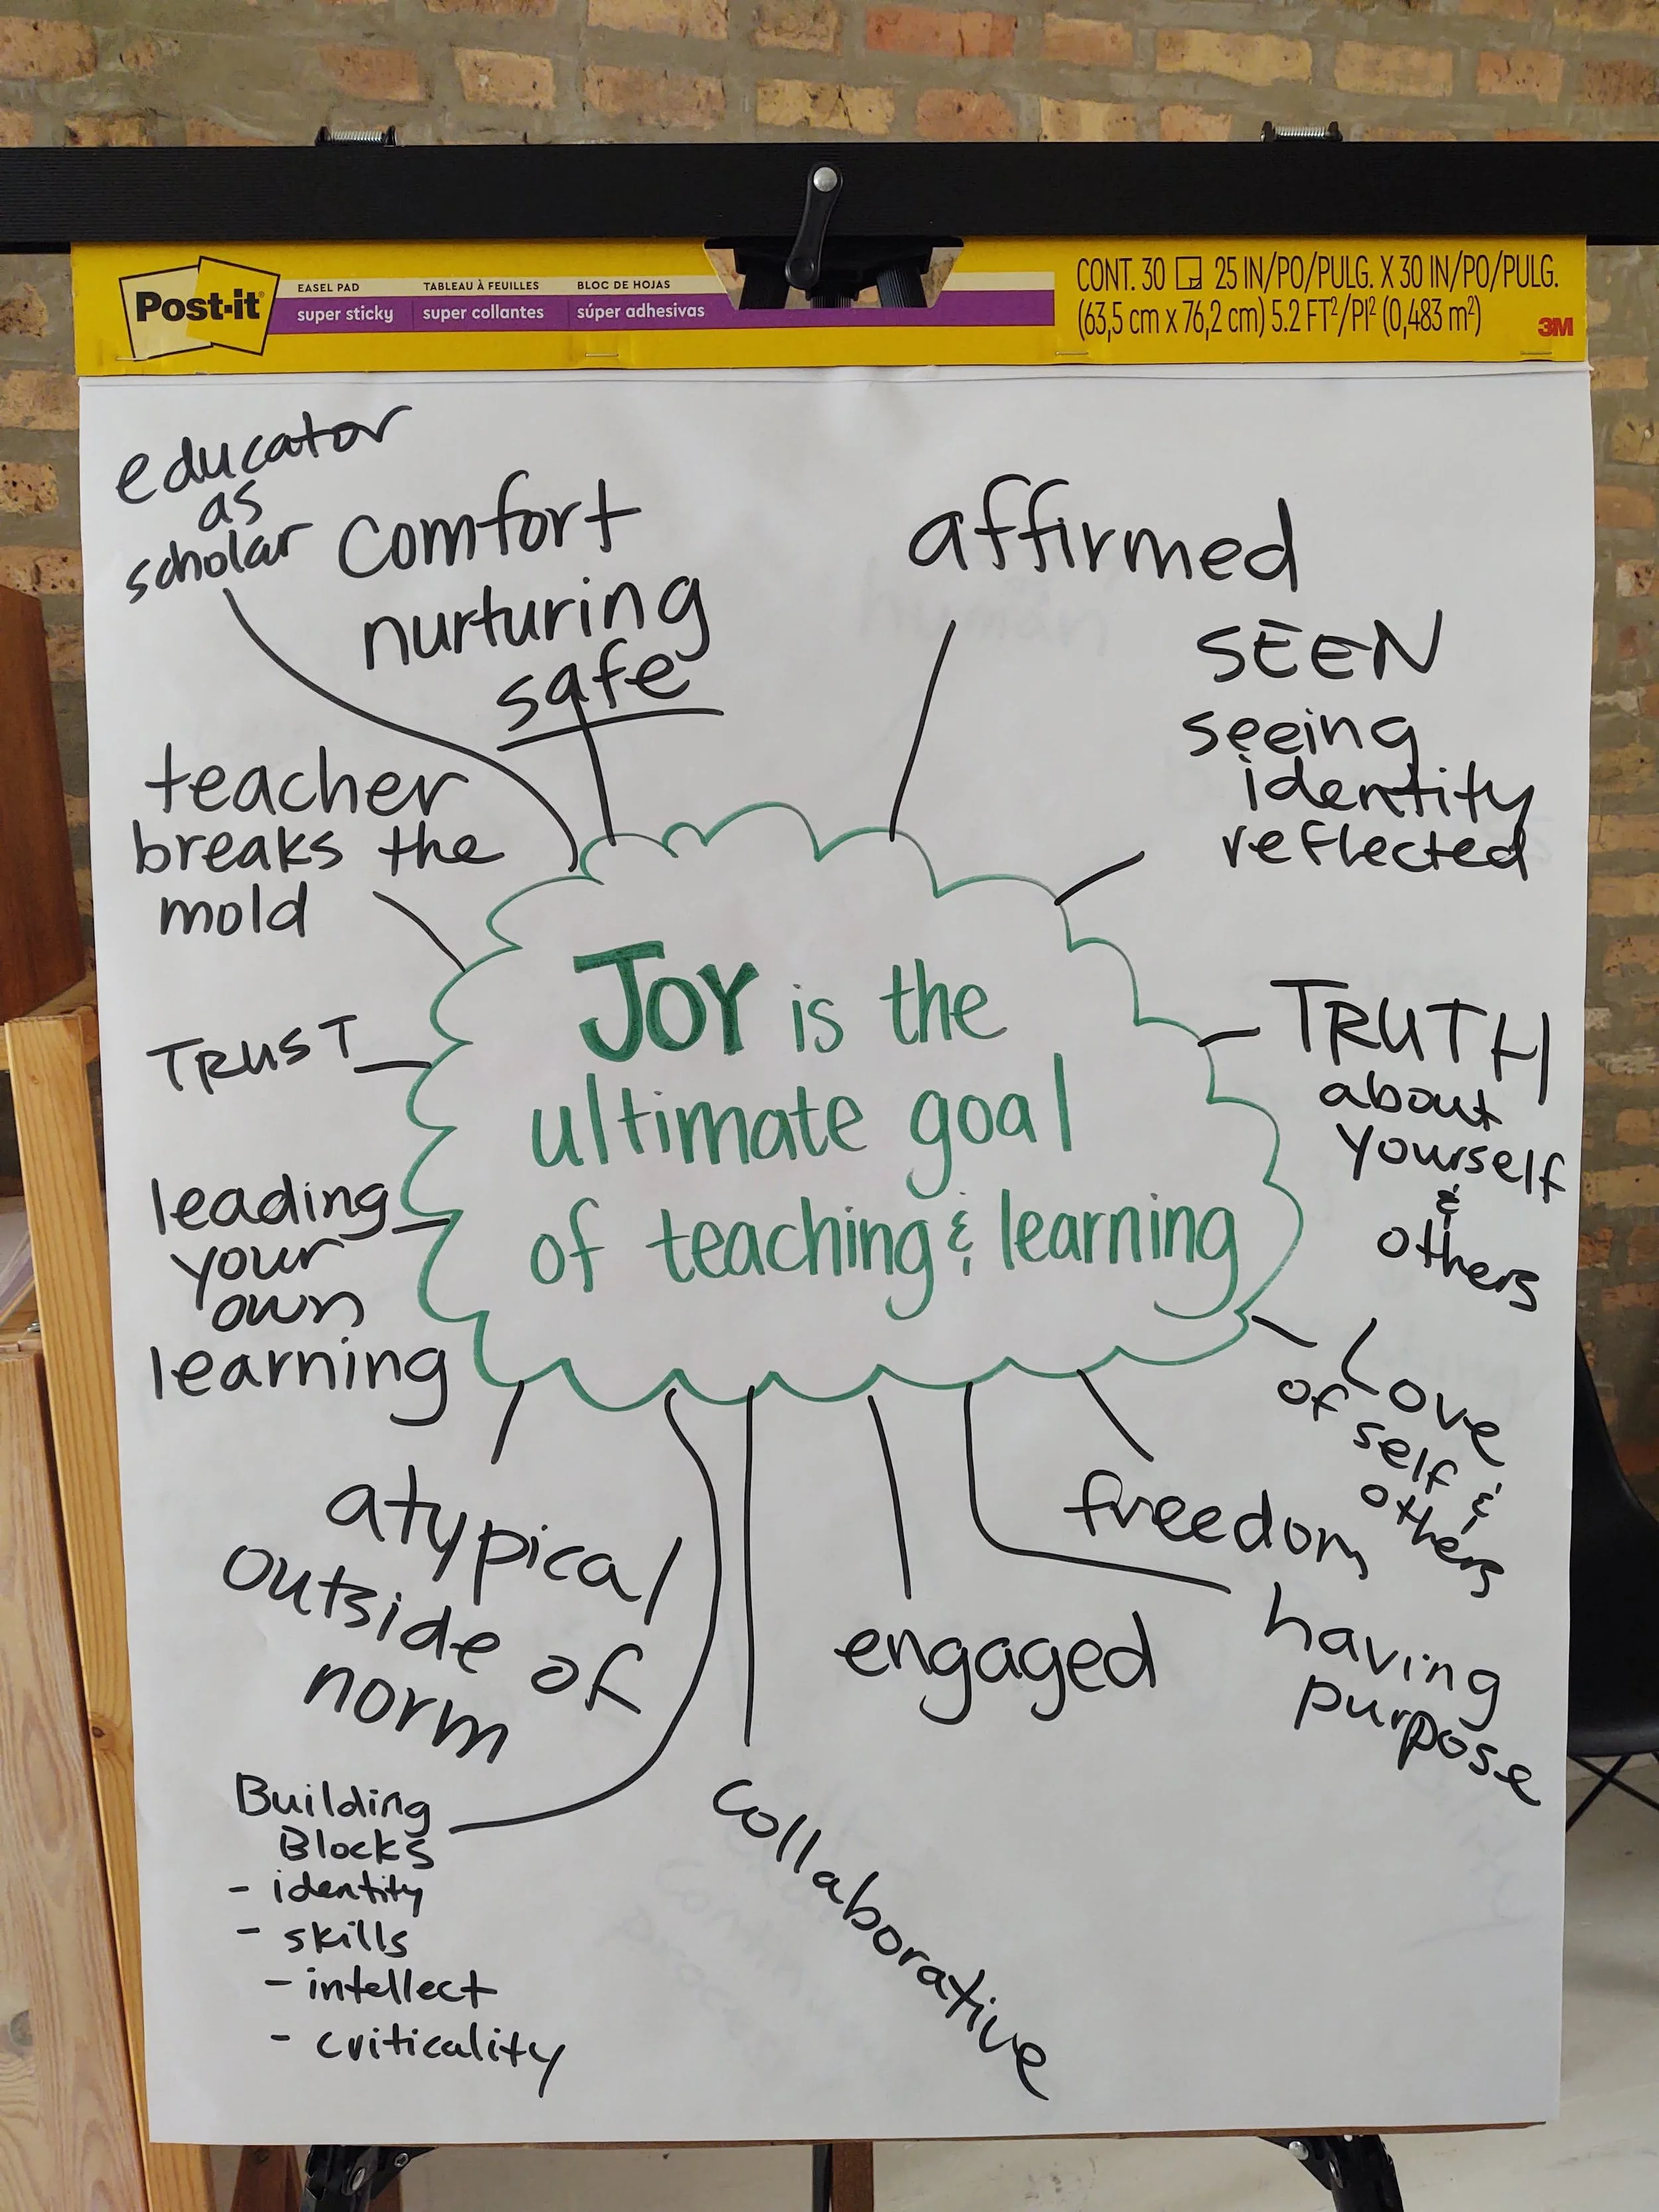 Post-it®
EASEL PAD
super sticky
TABLEAU À FEUILLES
super collantes
BLOC DE HOJAS
súper adhesivas
CONT. 30 25 IN/PO/PULG. X 30 IN/PO/PULG.
(63,5 cm x 76,2 cm) 5.2 FT²/PI² (0,483 m²)
3M
educator
as
scholar
comfort
nurturing
safe
affirmed
human
SEEN
seeing
identity
reflected
teacher
breaks the
mold
JOY is the
ultimate goal
of teaching & learning
TRUST
TRUTH
about
yourself
&
others
leading
your
own
learning
Love
of self &
others
atypical
outside of
norm
freedom
having
purpose
engaged
collaborative
Building
Blocks
- identity
- skills
- intellect
- criticality